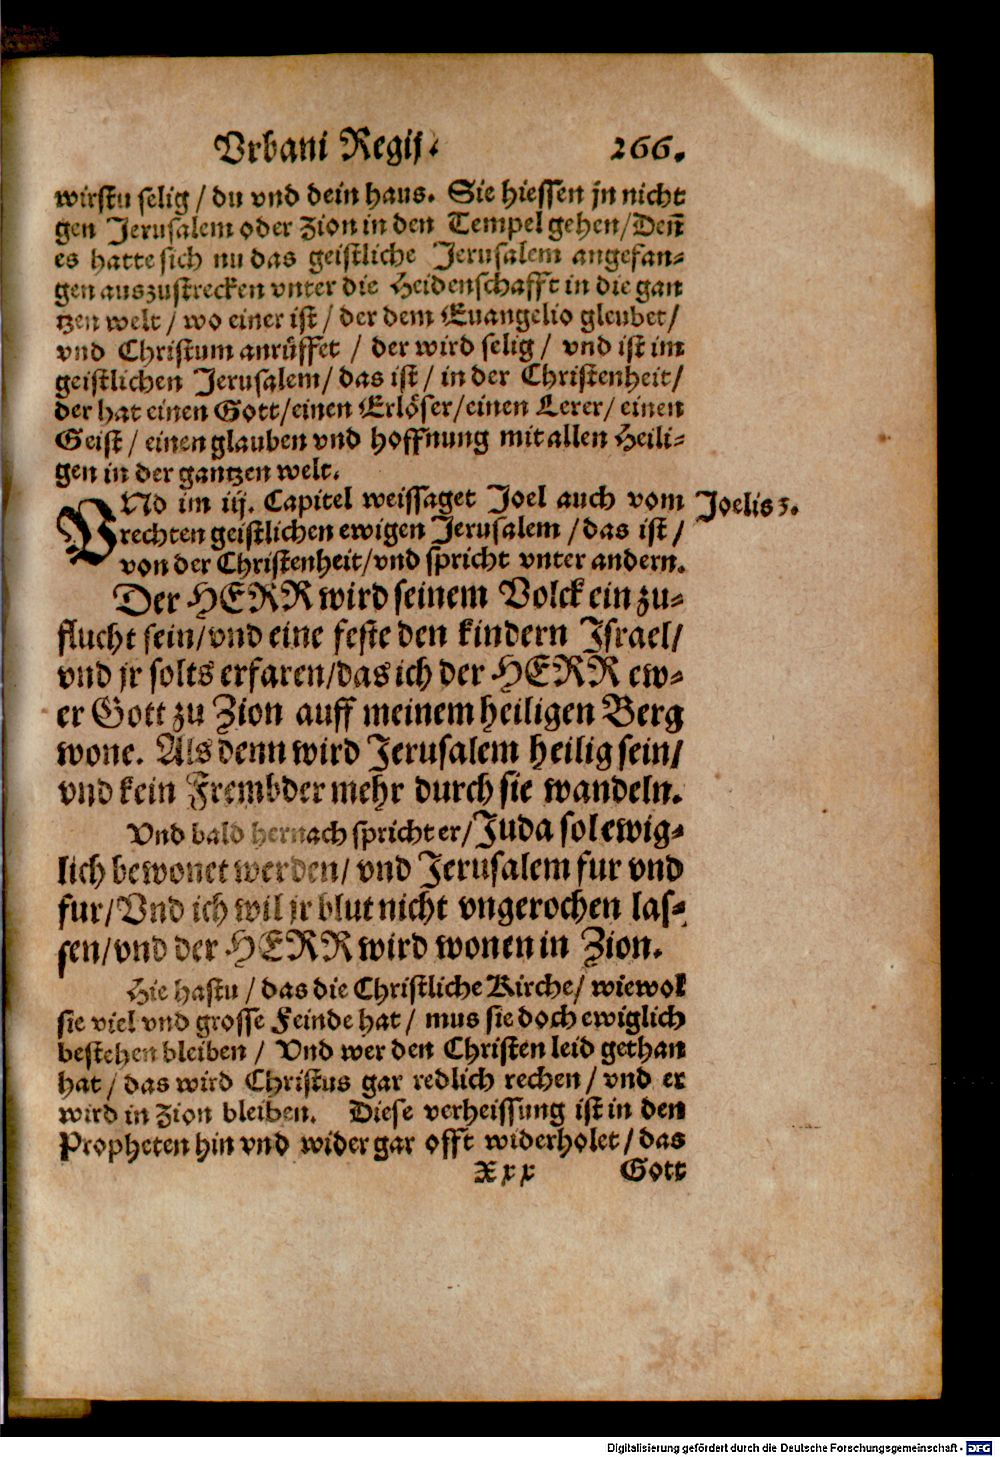 Vrbani Regij. 266.
wirstu selig / du vnd dein haus. Sie hiessen jn nicht
gen Jerusalem oder Zion in den Tempel gehen/Deñ
es hatte sich nu das geistliche Jerusalem angefan-
gen auszustrecken vnter die Heidenschafft in die gan
tzen welt / wo einer ist / der dem Euangelio gleubet/
vnd Christum anrüffet / der wird selig / vnd ist im
geistlichen Jerusalem/ das ist / in der Christenheit/
der hat einen Gott/einen Erlöser/einen Lerer/ einen
Geist / einen glauben vnd hoffnung mit allen Heili-
gen in der gantzen welt.
VNd im iij. Capitel weissaget Joel auch vom
Joelis 3.
rechten geistlichen ewigen Jerusalem /das ist /
von der Christenheit/vnd spricht vnter andern.
Der HERR wird seinem Volck ein zu-
flucht sein/vnd eine feste den kindern Israel/
vnd jr solts erfaren/das ich der HERR ew-
er Gott zu Zion auff meinem heiligen Berg
wone. Als denn wird Jerusalem heilig sein/
vnd kein Frembder mehr durch sie wandeln.
Vnd bald hernach spricht er/Juda sol ewig-
lich bewonet werden/ vnd Jerusalem fur vnd
fur/Vnd ich wil jr blut nicht vngerochen las-
sen/vnd der HERR wird wonen in Zion.
Hie hastu / das die Christliche Kirche/ wiewol
sie viel vnd grosse Feinde hat / mus sie doch ewiglich
bestehen bleiben / Vnd wer den Christen leid gethan
hat / das wird Christus gar redlich rechen / vnd er
wird in Zion bleiben. Diese verheissung ist in den
Propheten hin vnd wider gar offt widerholet / das
Xxx Gott
Digitalisierung gefördert durch die Deutsche Forschungsgemeinschaft - DFG